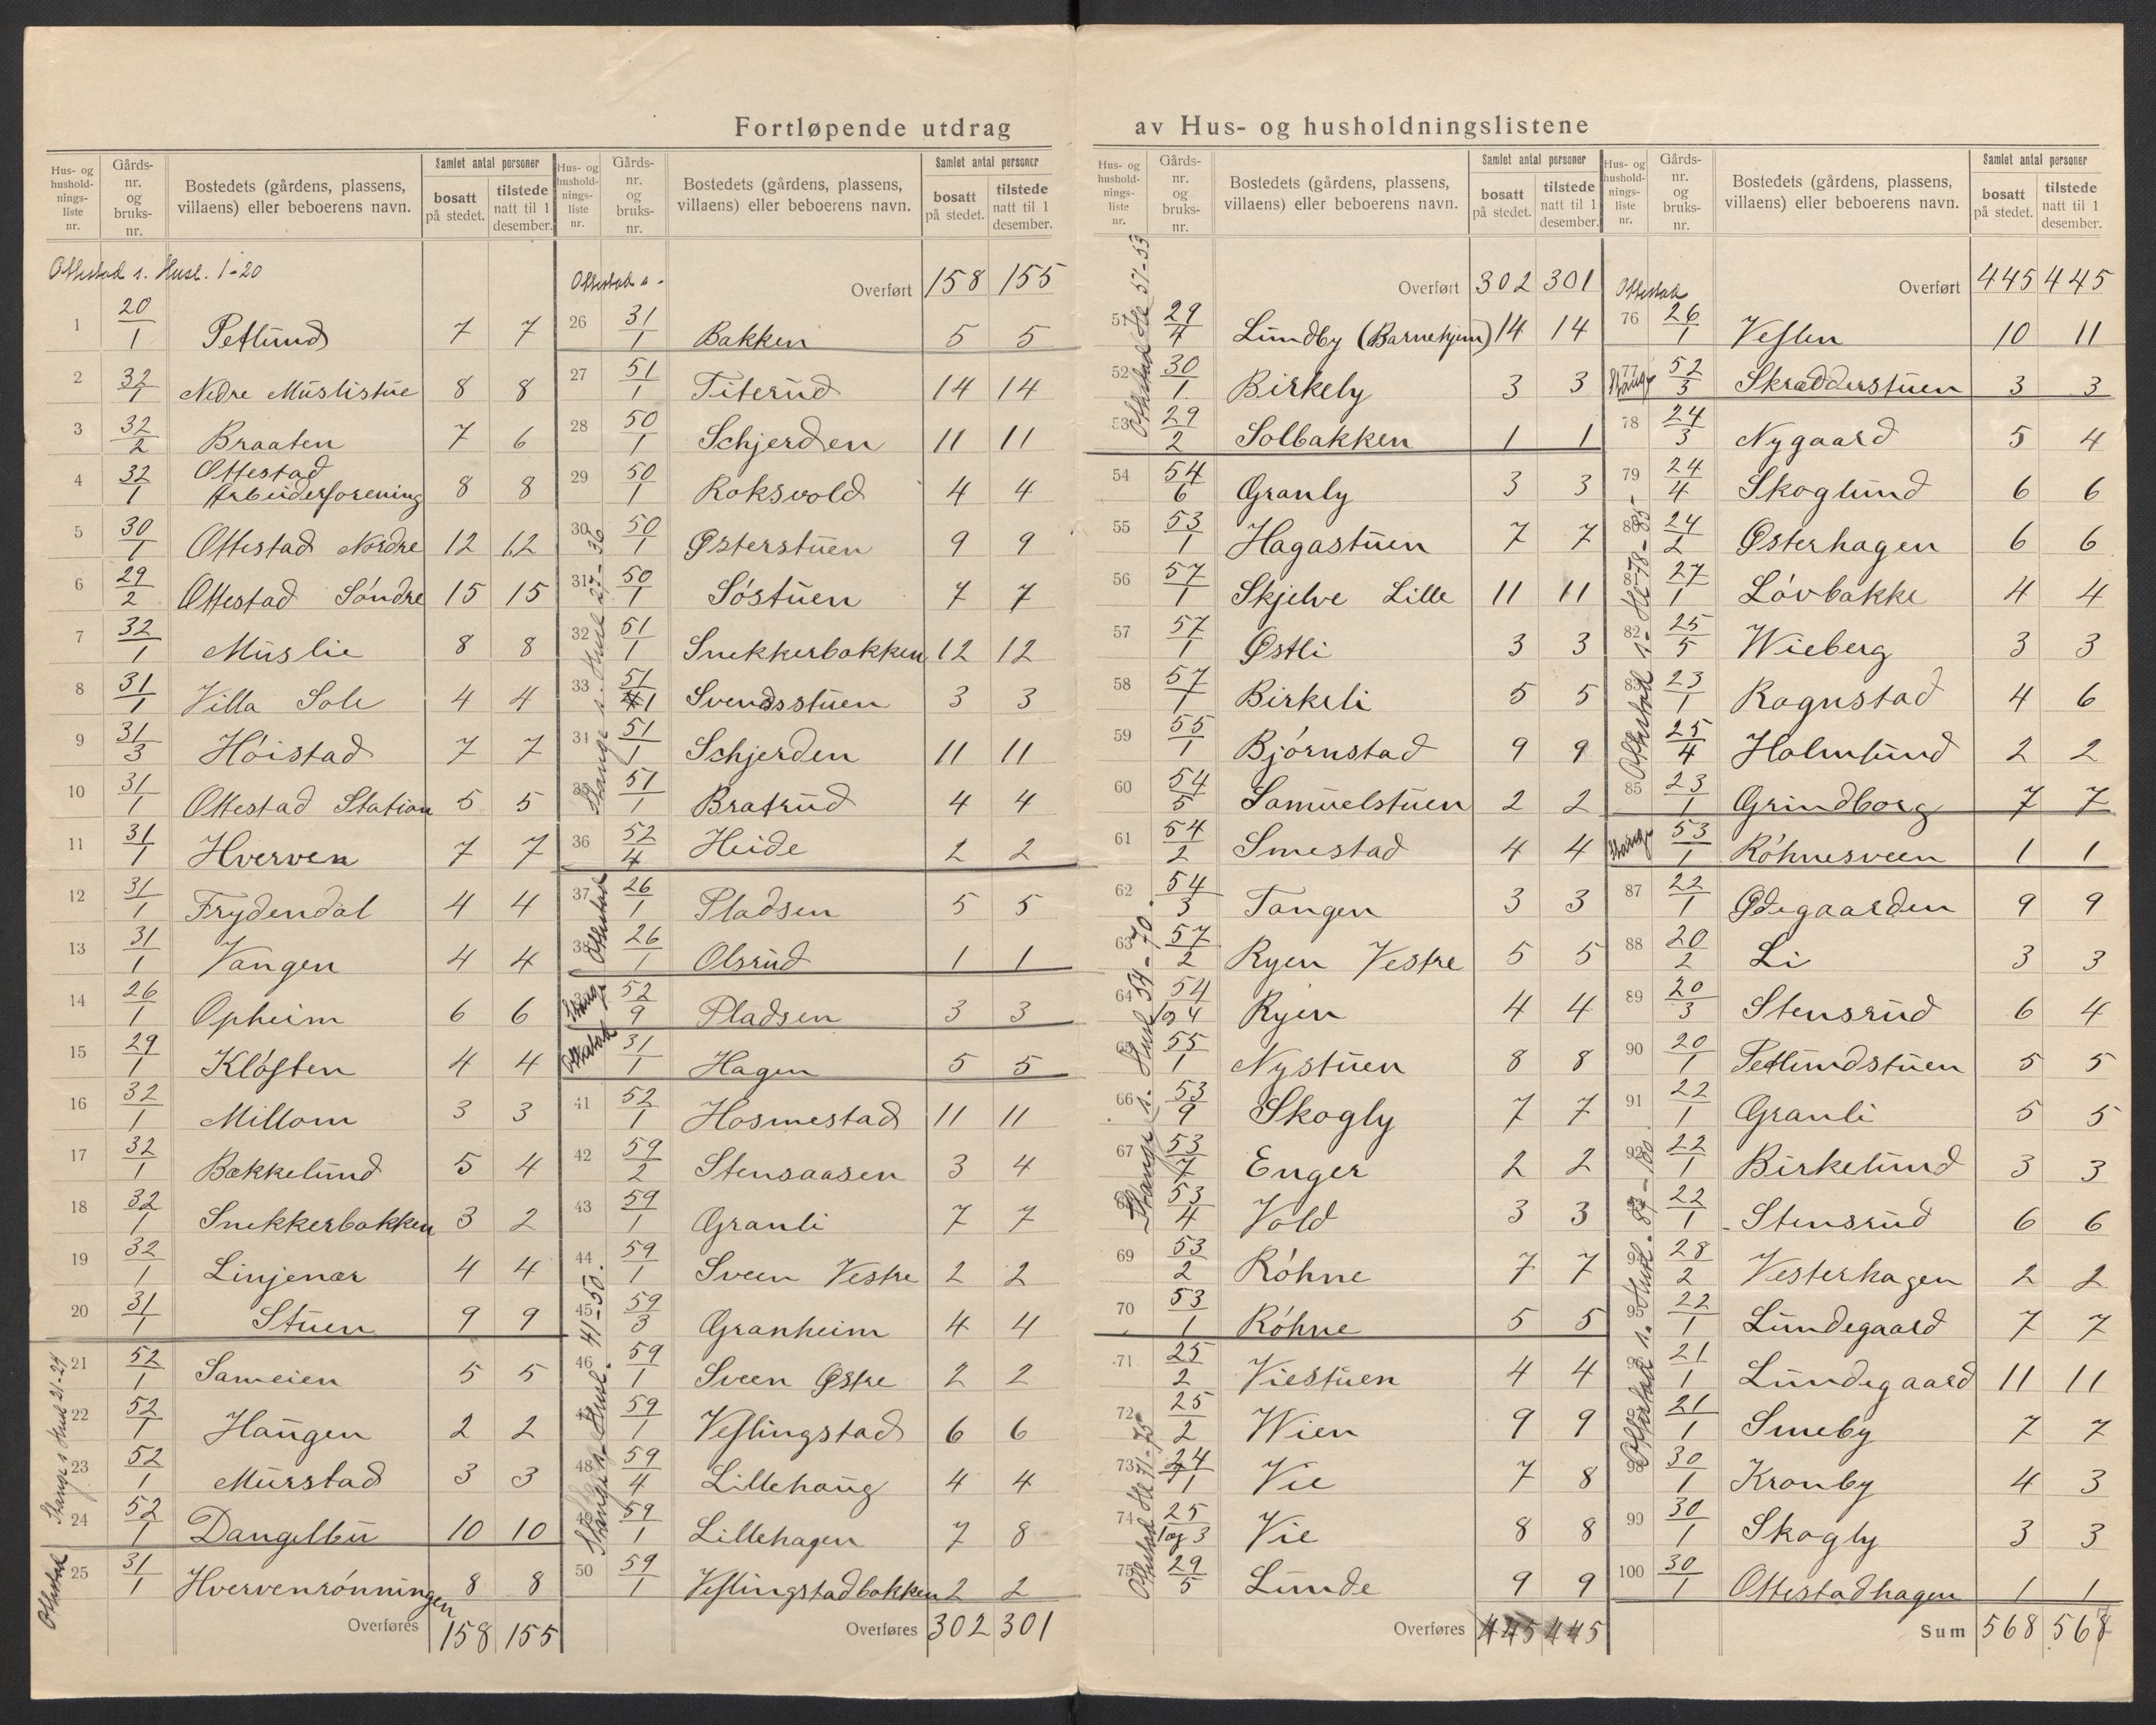 Fortløpende utdrag av Hus- og husholdningslistene
Hus- og hushold-nings-liste nr. | Gårds-nr. og bruks-nr. | Bostedets (gårdens, plassens, villaens) eller beboerens navn. | Samlet antal personer | bosatt på stedet. | tilstede natt til 1 desember.
Ottestad s. Husl. 1-20
1 20/1 Petlund 7 7
2 32/1 Nedre Muslistue 8 8
3 32/2 Braaten 7 6
4 32/1 Ottestad Arbeiderforening 8 8
5 30/1 Ottestad Nordre 12 12
6 29/2 Ottestad Søndre 15 15
7 32/1 Muslie 8 8
8 31/1 Villa Sole 4 4
9 31/3 Høistad 7 7
10 31/1 Ottestad Station 5 5
11 31/1 Hverven 7 7
12 31/1 Frydendal 4 4
13 31/1 Vangen 4 4
14 26/1 Opheim 6 6
15 29/1 Kløften 4 4
16 32/1 Millom 3 3
17 32/1 Bækkelund 5 4
18 32/1 Snekkerbakken 3 2
19 32/1 Linjenær 4 4
20 31/1 Stuen 9 9
Stange s. Husl 21-24
21 52/1 Sameien 5 5
22 52/1 Haugen 2 2
23 52/1 Murstad 3 3
24 52/1 Dangelbu 10 10
Ottestad
25 31/1 Hvervenrønningen 8 8
Overføres 158 155
Hus- og hushold-nings-liste nr. | Gårds-nr. og bruks-nr. | Bostedets (gårdens, plassens, villaens) eller beboerens navn. | Samlet antal personer | bosatt på stedet. | tilstede natt til 1 desember.
Ottestad s.
Overført 158 155
26 31/1 Bakken 5 5
Stange s. Husl 27-36
27 51/1 Titerud 14 14
28 50/1 Schjerden 11 11
29 50/1 Roksvold 4 4
30 50/1 Østerstuen 9 9
31 50/1 Søstuen 7 7
32 51/1 Snekkerbakken 12 12
33 51/1 Svendsstuen 3 3
34 51/1 Schjerden 11 11
35 51/1 Bratrud 4 4
36 52/4 Heide 2 2
Ottestad
37 26/1 Pladsen 5 5
38 26/1 Olsrud 1 1
Stange
52/9 Pladsen 3 3
Ottestad
31/1 Hagen 5 5
Stange s. Husl. 41-50.
41 52/1 Hosmestad 11 11
42 59/2 Stensaasen 3 4
43 59/1 Granli 7 7
44 59/1 Sveen Vestre 2 2
45 59/3 Granheim 4 4
46 59/1 Sveen Østre 2 2
59/1 Veslingstad 6 6
48 59/4 Lillehaug 4 4
59/1 Lillehagen 7 8
50 59/1 Veslingstadbakken 2 2
Overføres 302 301
Hus- og hushold-nings-liste nr. | Gårds-nr. og bruks-nr. | Bostedets (gårdens, plassens, villaens) eller beboerens navn. | Samlet antal personer | bosatt på stedet. | tilstede natt til 1 desember.
Ottestad Hl 51-53
Overført 302 301
51 29/4 Lundby (Barnehjem) 14 14
52 30/1 Birkely 3 3
53 29/2 Solbakken 1 1
Stange s. Husl 54-70.
54 54/6 Granly 3 3
55 53/1 Hagastuen 7 7
56 57/1 Skjelve Lille 11 11
57 57/1 Østli 3 3
58 57/1 Birkeli 5 5
59 55/1 Bjørnstad 9 9
60 54/5 Samuelstuen 2 2
61 54/2 Smestad 4 4
62 54/3 Tangen 3 3
63 57/2 Ryen Vestre 5 5
64 54/1 og 4 Ryen 4 4
55/1 Nystuen 8 8
66 53/9 Skogly 7 7
67 53/7 Enger 2 2
53/4 Vold 3 3
69 53/2 Røhne 7 7
70 53/1 Røhne 5 5
Ottestad Hl 71-75
71 25/2 Viestuen 4 4
72 25/2 Wien 9 9
73 24/1 Vie 7 8
74 25/1 og 3 Vie 8 8
75 29/5 Lunde 9 9
Overføres 445 445
Hus- og hushold-nings-liste nr. | Gårds-nr. og bruks-nr. | Bostedets (gårdens, plassens, villaens) eller beboerens navn. | Samlet antal personer | bosatt på stedet. | tilstede natt til 1 desember.
Ottestad
Overført 445 445
76 26/1 Veslen 10 11
Stange
77 52/3 Skrædderstuen 3 3
Ottestad s. Hl 78-85
78 24/3 Nygaard 5 4
79 24/4 Skoglund 6 6
80 24/2 Østerhagen 6 6
27/1 Løvbakke 4 4
82 25/5 Wieberg 3 3
23/1 Ragnstad 4 6
25/4 Holmlund 2 2
85 23/1 Grindborg 7 7
Stange
53/1 Røhnesveen 1 1
Ottestad s. Husl. 87-100.
87 22/1 Ødegaarden 9 9
88 20/2 Li 3 3
89 20/3 Stensrud 6 4
90 20/1 Petlundstuen 5 5
91 22/1 Granli 5 5
92 22/1 Birkelund 3 3
22/1 Stensrud 6 6
28/2 Vesterhagen 2 2
95 22/1 Lundegaard 7 7
21/1 Lundegaard 11 11
21/1 Smeby 7 7
98 30/1 Kronby 4 3
99 30/1 Skogly 3 3
100 30/1 Ottestadhagen 1 1
Sum 568 568